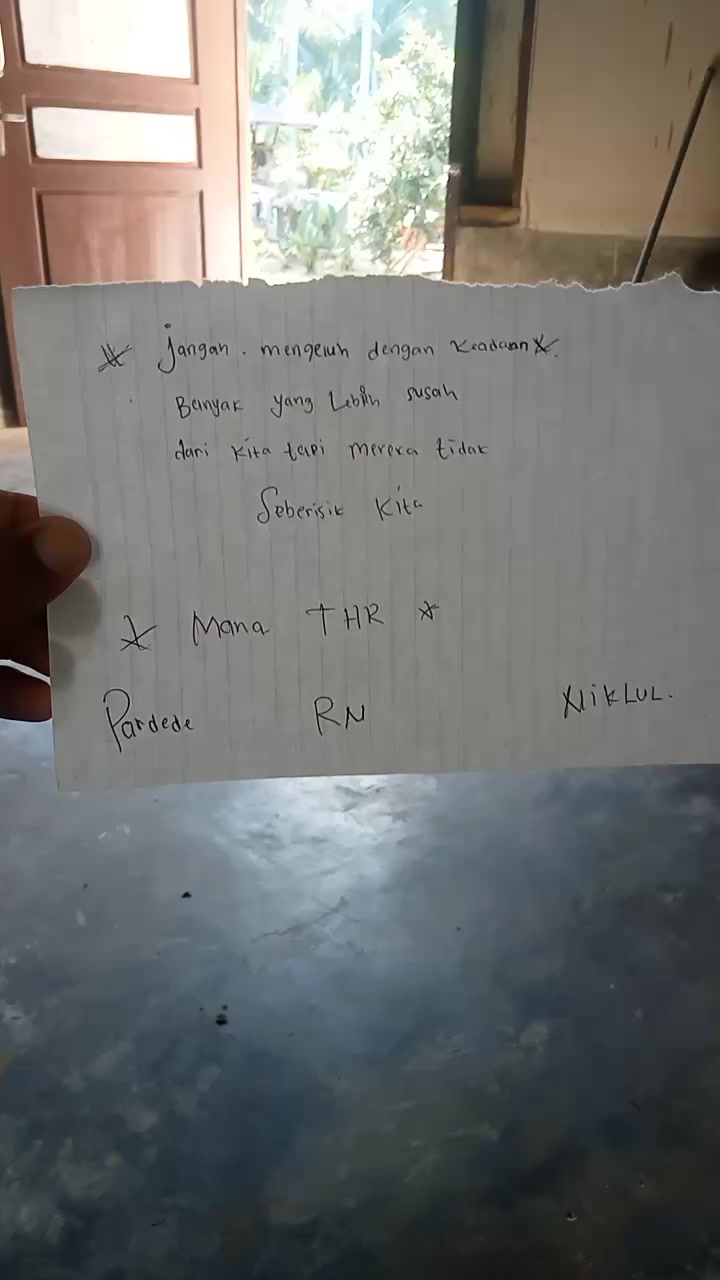 * Jangan. mengeluh dengan Keadaan *.
Banyak yang Lebih susah
dari Kita tapi mereka tidak
Seberisik Kita
* Mana THR *
Pardede RN XliKLUL.